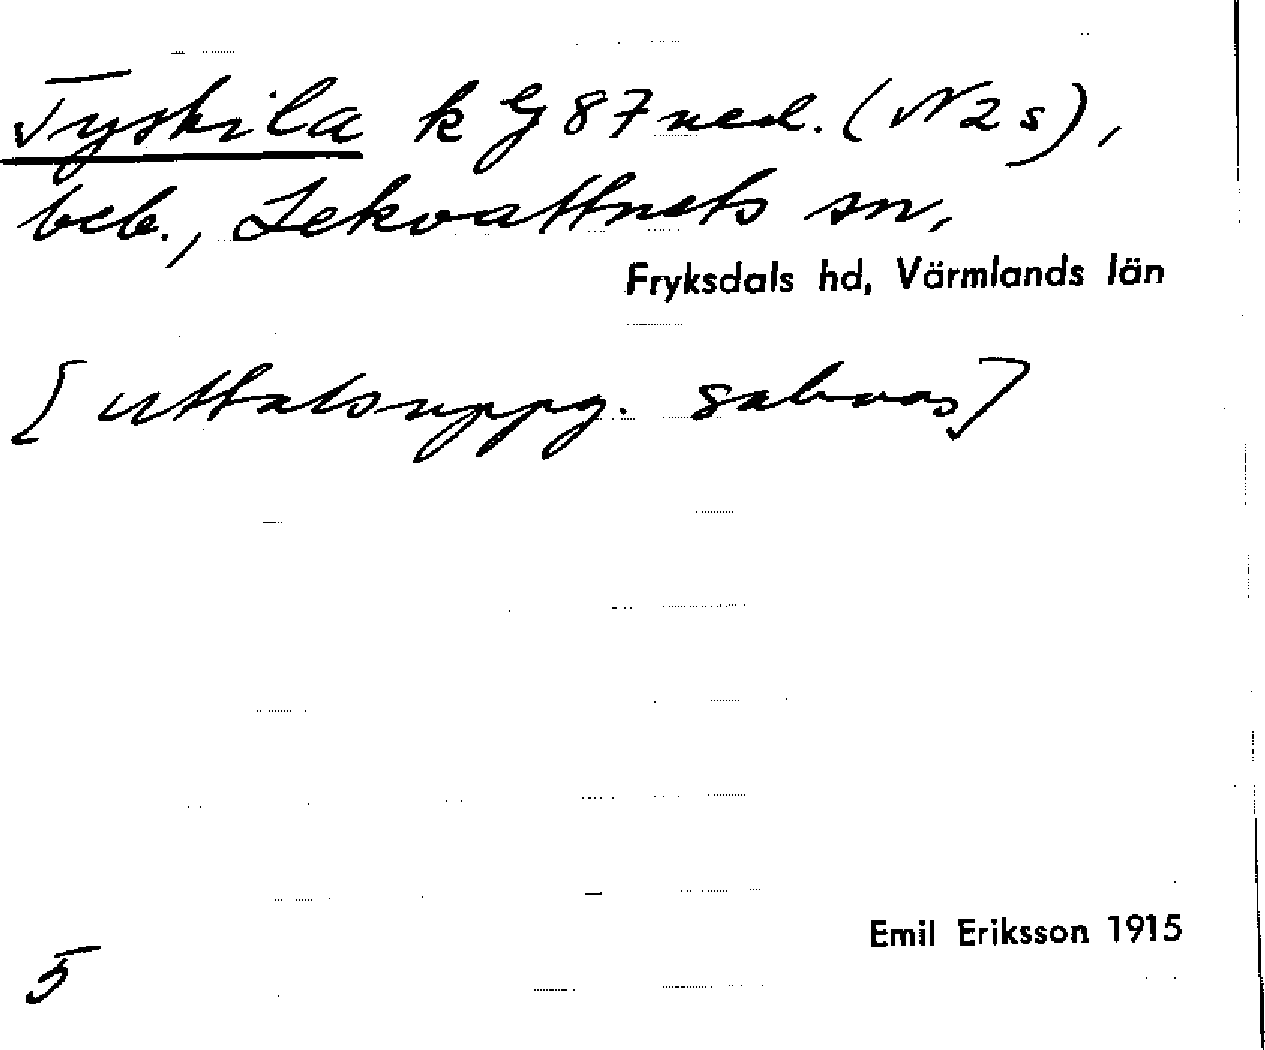 Tyskila k G 87 ned. (N2s),
beb., Lekvattnets sn,
Fryksdals hd, Värmlands län
[uttalsuppg. saknas]
Emil Eriksson 1915
5